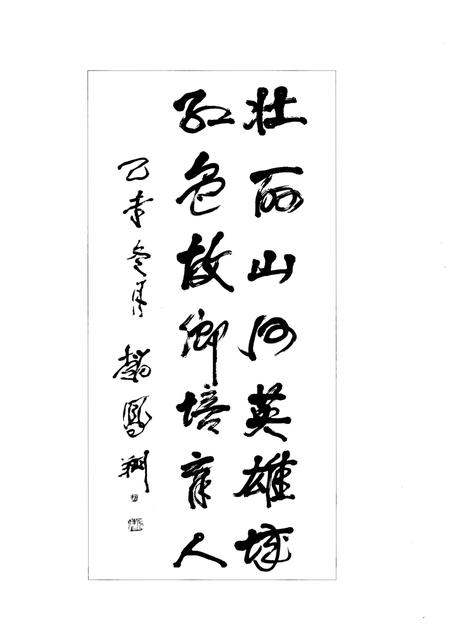 壮丽山河英雄城
红色故乡培育人
乙未冬月 赵凤翔